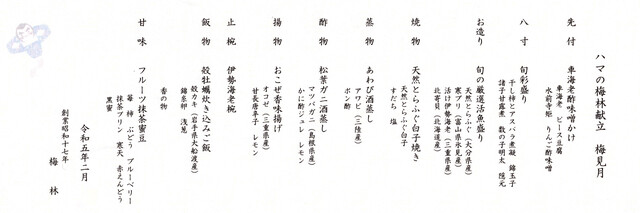 ハマの梅林献立　梅見月
先付　車海老酢味噌かけ
車海老　ピース豆腐
水前寺苔　りんご酢味噌
八寸　旬彩盛り
干し柿とアスパラ煮凝　錦玉子
諸子甘露煮　数の子明太　隠元
お造り　旬の厳選活魚盛り
天然とらふぐ（大分県産）
寒ブリ（富山県氷見産）
活け伊勢海老（三重県産）
北寄貝（北海道産）
焼物　天然とらふぐ白子焼き
天然とらふぐ白子
すだち　塩
蒸物　あわび酒蒸し
アワビ（三陸産）
ポン酢
酢物　松葉ガニ酒蒸し
マツバガニ（島根県産）
かに酢ジュレ　レモン
揚物　おこぜ香味揚げ
オコゼ（三重県産）
甘長唐辛子　レモン
止椀　伊勢海老椀
飯物　殻牡蠣炊き込みご飯
殻カキ（岩手県大船渡産）
錦糸卵　浅葱
香の物
甘味　フルーツ抹茶蜜豆
苺　柿　ぶどう　ブルーベリー
抹茶プリン　寒天　赤えんどう
黒蜜
令和五年二月
創業昭和十七年
梅林